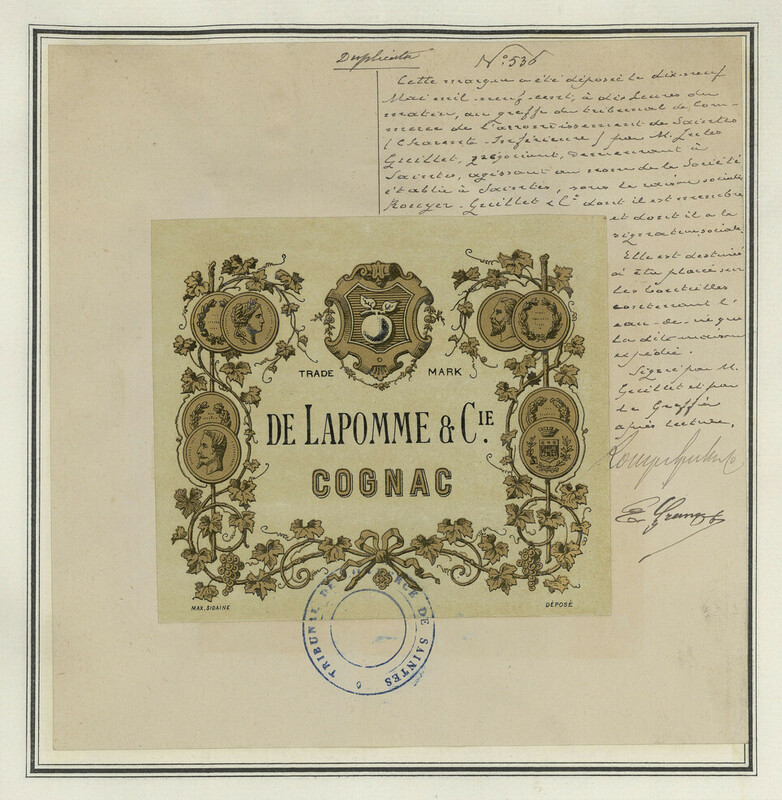 Duplicata
N° 536
Cette marque a été déposée le dix-neuf
Mai mil neuf cent, à dix heures du
matin, au greffe du tribunal de Com-
merce de l'arrondissement de Saintes
(Charente-Inférieure) par M. Jules
Guillet, négociant, demeurant à
Saintes, agissant au nom de la Société
établie à Saintes, sous la raison sociale
Rouyer-Guillet & Cie dont il est membre
et dont il a la
signature sociale.
Elle est destinée
à être placée sur
les bouteilles
contenant l'
eau-de-vie que
la dite maison
expédie.
Signé par M.
Guillet et par
le Greffier
après lecture.
Rouyer Guillet & Co
TRADE MARK
DE LAPOMME & CIE.
COGNAC
MAX. SIDAINE
DÉPOSÉ
TRIBUNAL DE COMMERCE DE SAINTES